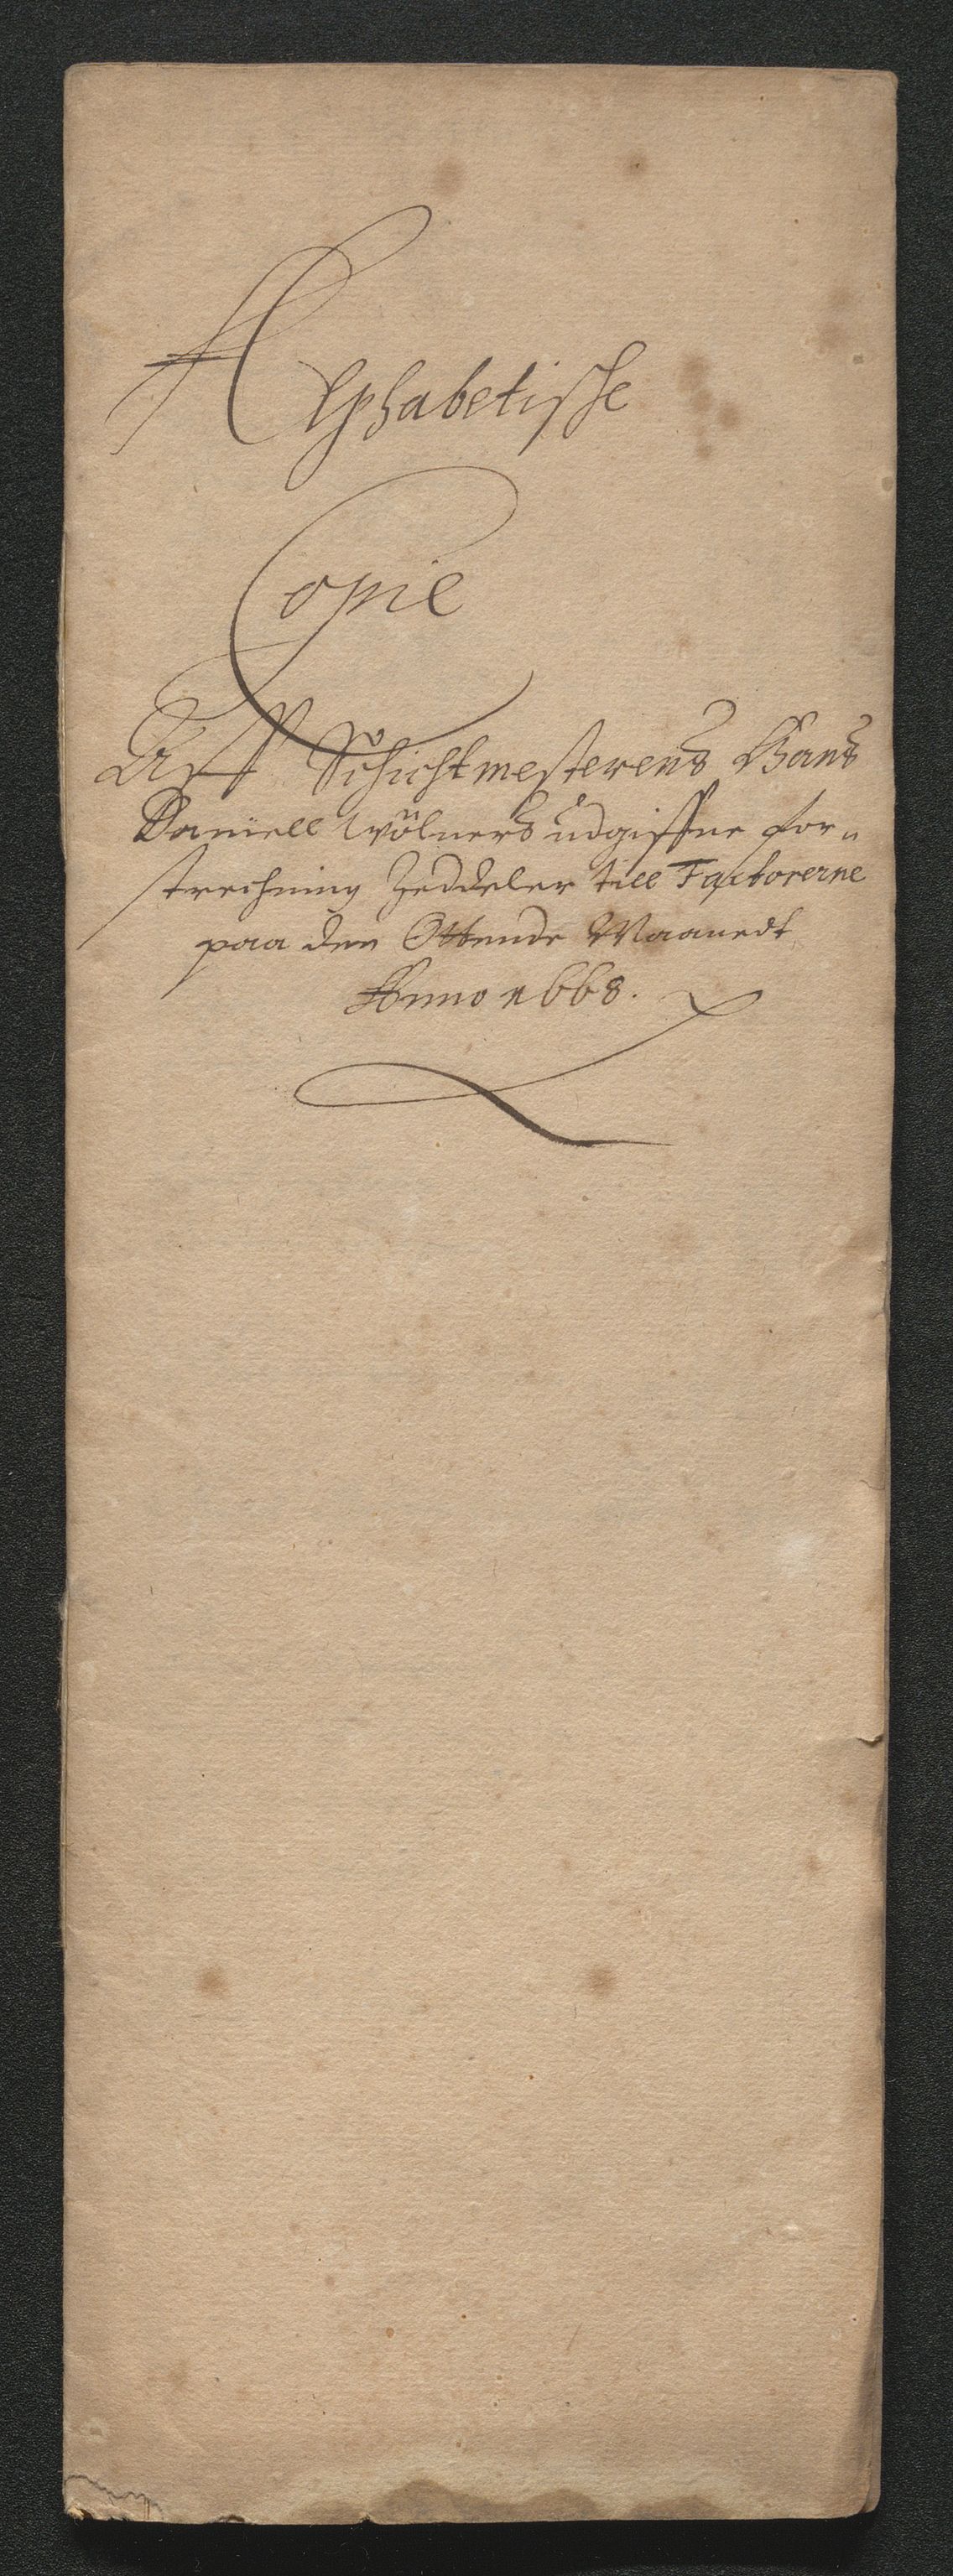 Alphabetische
Copie
Aff Schichtmesterens Hans
Daniell Wölners udgiffne for„
strechning Zeddeler till Factorerne
paa den Ottende Maanedt
Anno 1668.